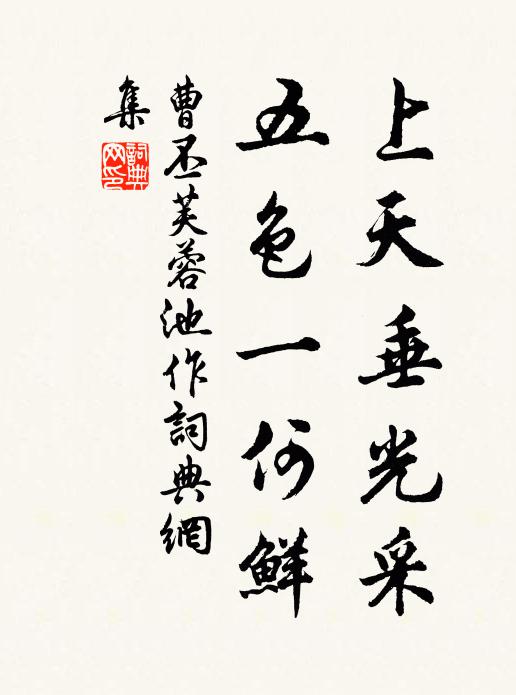 上天垂光采
五色一何鮮
曹丕芙蓉池作詞典網
集
詞典网印